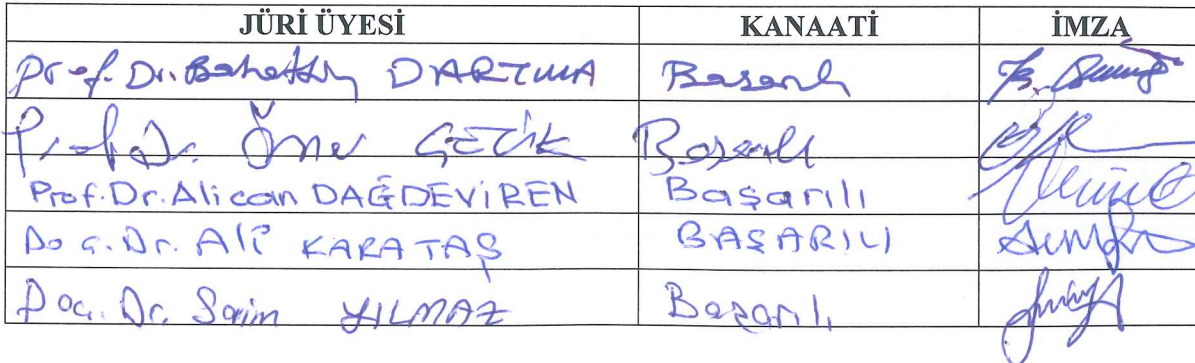 JÜRİ ÜYESİ KANAATİ İMZA
Prof. Dr. Bahattin DARTMA Başarılı
Prof. Dr. Ömer ÇELİK Başarılı
Prof. Dr. Alican DAĞDEVİREN Başarılı
Doç. Dr. Ali KARATAŞ BAŞARILI
Doç. Dr. Saim YILMAZ Başarılı